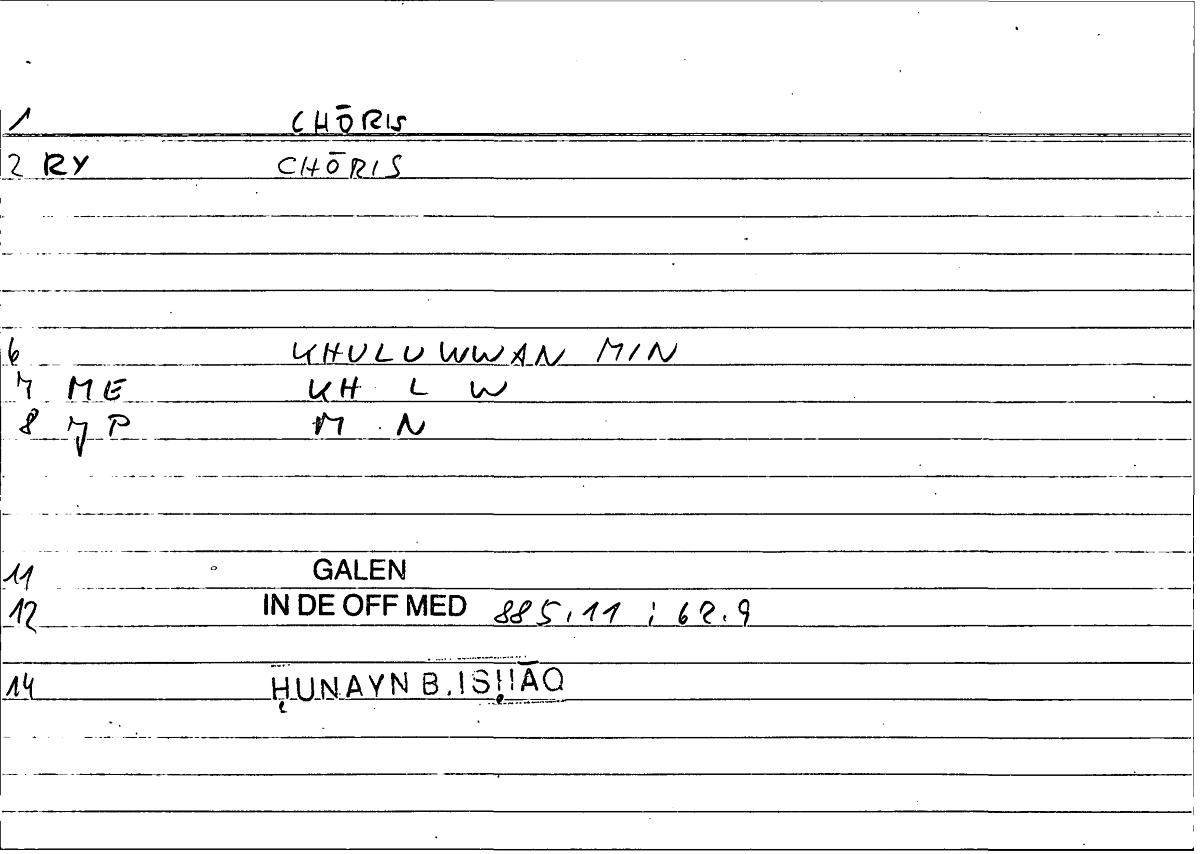 1 CHŌRIS
2 RY CHŌRIS
6 KHULUWWAN MIN
7 ME KH L W
8 JP M N
11 GALEN
12 IN DE OFF MED 885,11 ; 62.9
14 ḤUNAYN B. ISḤĀQ